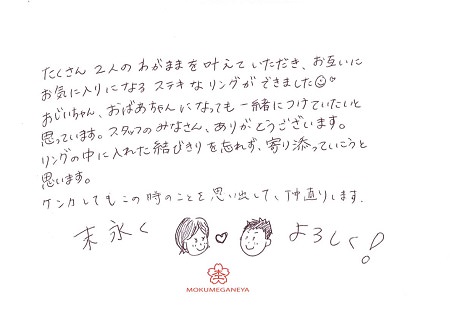 たくさん 2人の わがままを叶えていただき、お互いに
お気に入りになる ステキなリングができました
おじいちゃん、おばあちゃんになっても一緒につけていたいと
思っています。スタッフのみなさん、ありがとうございます。
リングの中に入れた結びきりを忘れず、寄り添っていこうと
思います。
ケンカしてもこの時のことを思い出して、仲直りします.
末永く よろしく!
MOKUMEGANEYA